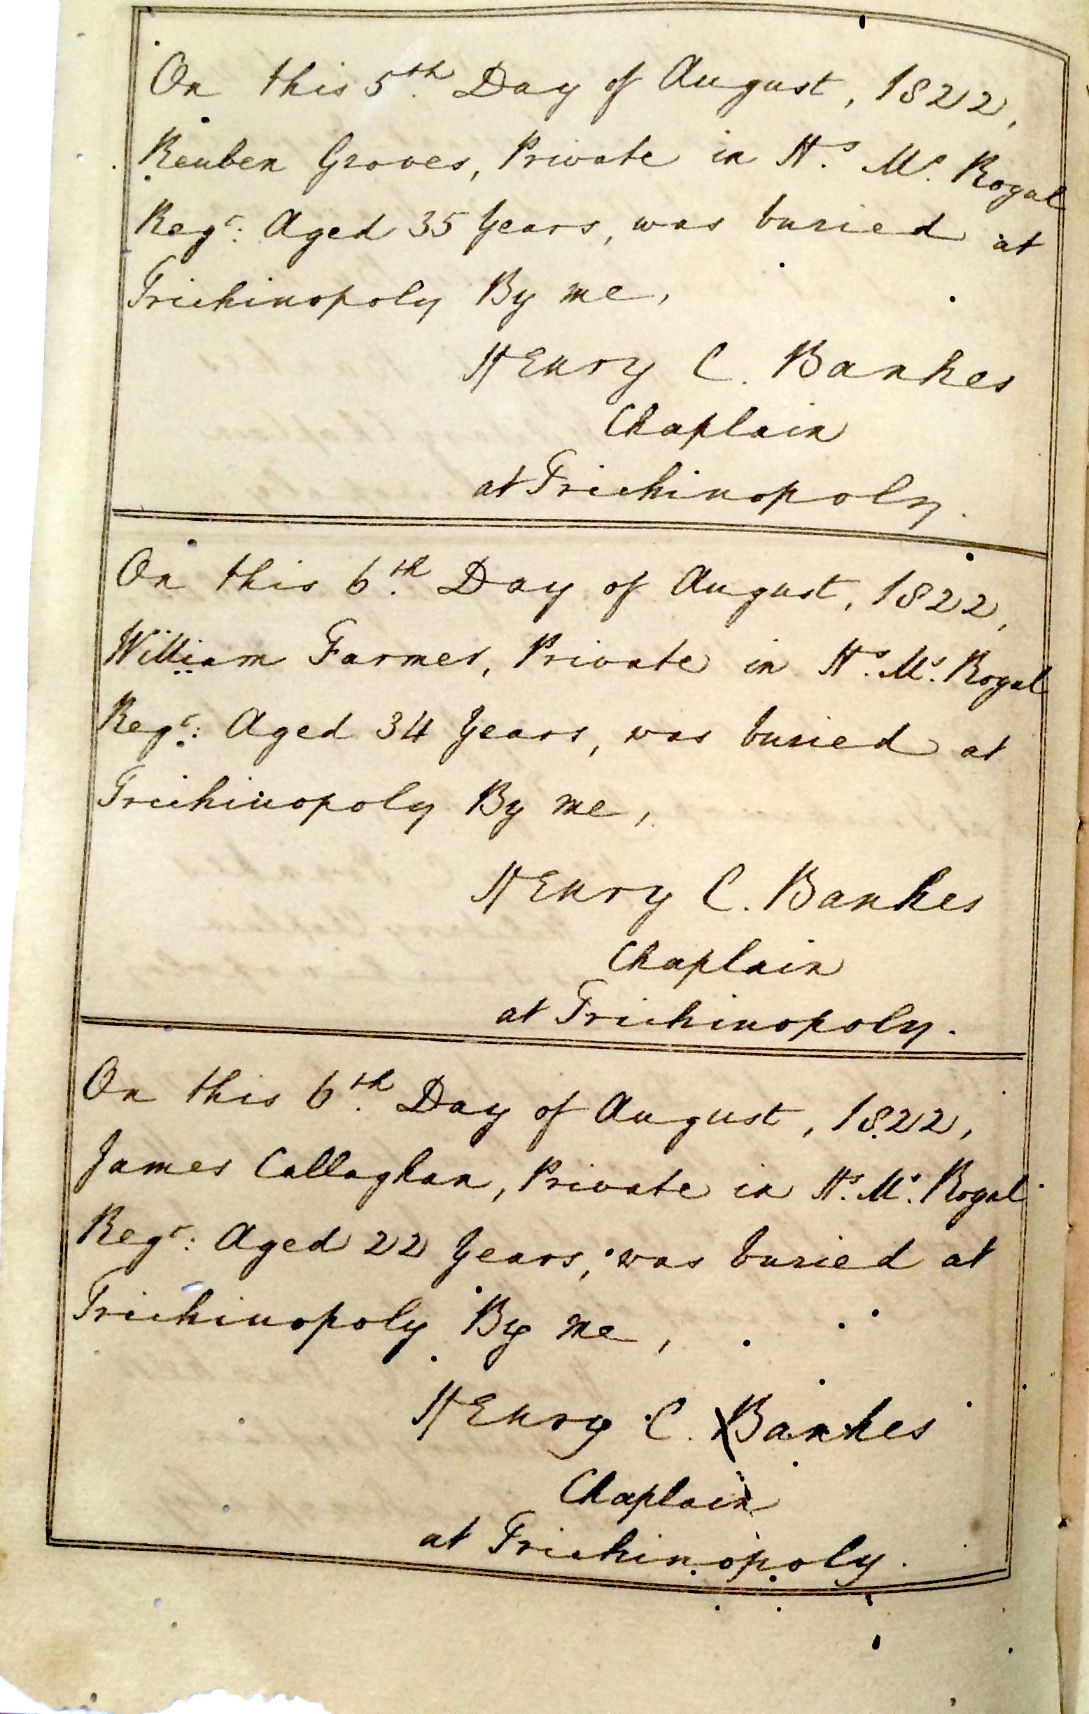 On this 5th Day of August, 1822,
Reuben Groves, Private in H.s M.s Royal
Regt: Aged 35 Years, was buried at
Trichinopoly By me,
Henry C. Bankes
Chaplain
at Trichinopoly.
On this 6th Day of August, 1822,
William Farmer, Private in H.s M.s Royal
Regt: Aged 34 Years, was buried at
Trichinopoly By me,
Henry C. Bankes
Chaplain
at Trichinopoly.
On this 6th Day of August, 1822,
James Callaghan, Private in H.s M.s Royal
Regt: Aged 22 Years, was buried at
Trichinopoly By me,
Henry C. Bankes
Chaplain
at Trichinopoly.